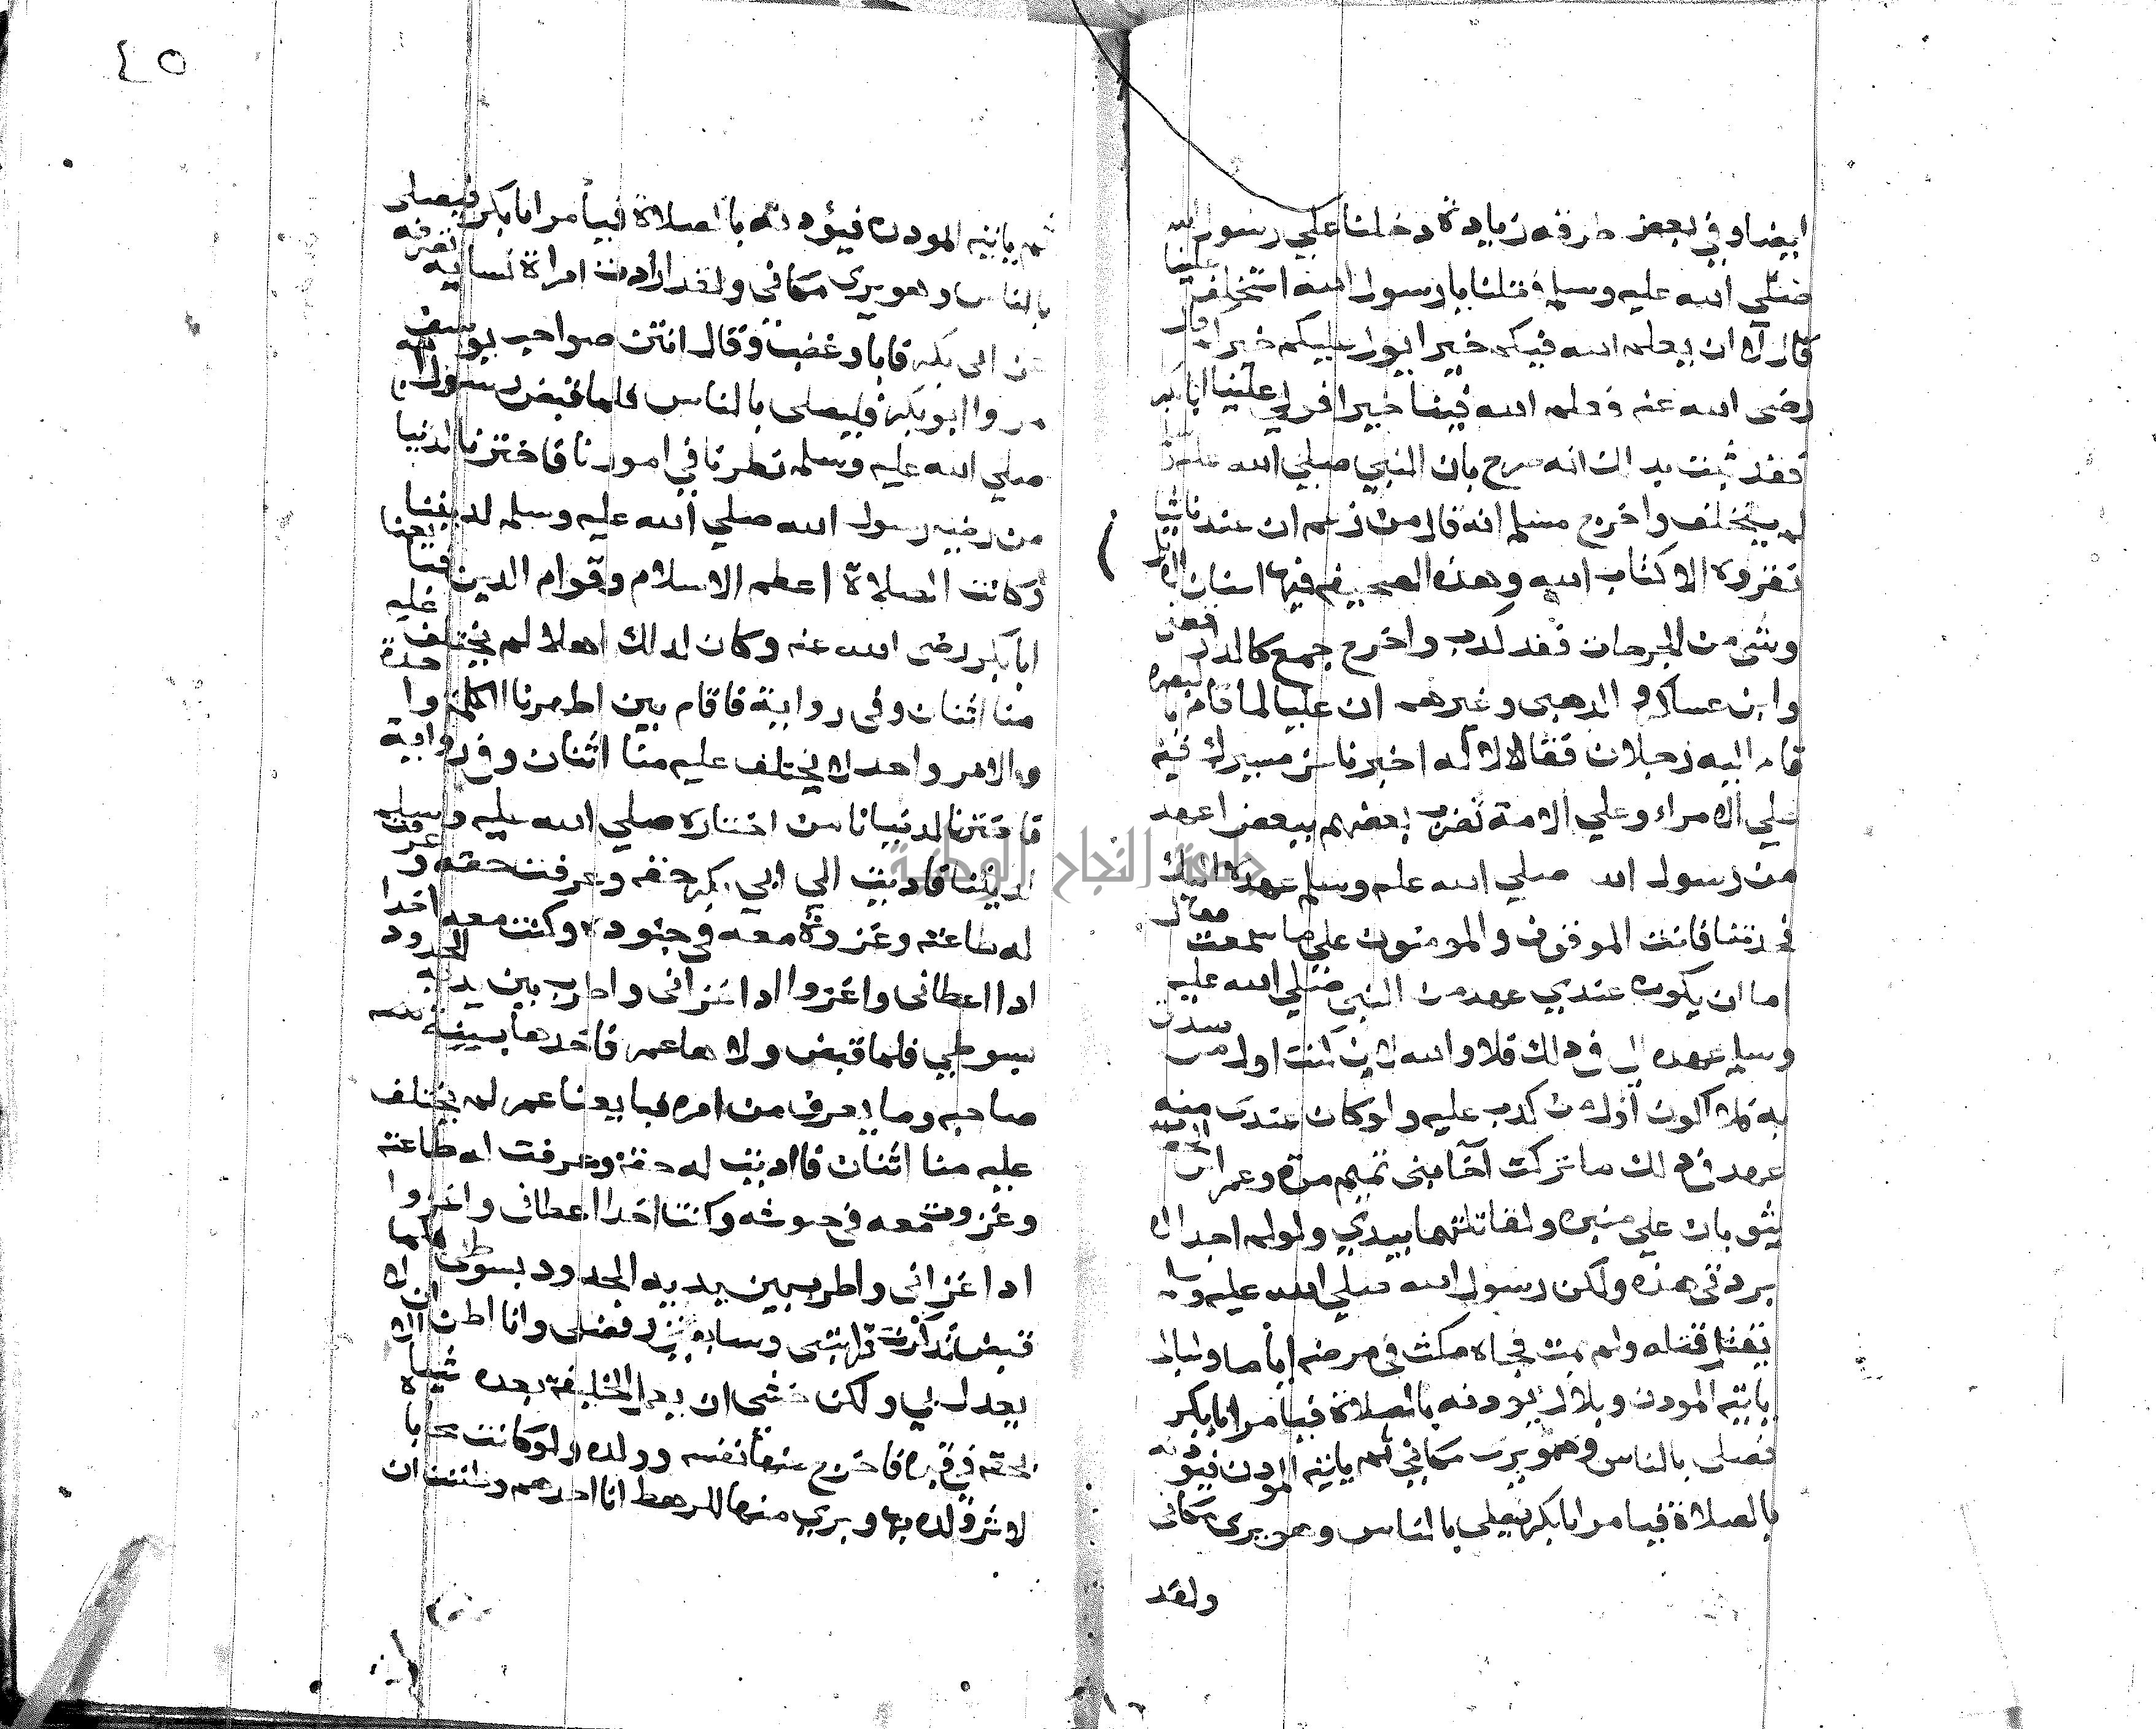 ايضا وفي بعض طرقه زيادة دخلنا علي رسول الله
صلي الله عليه وسلم فقلنا يا رسول الله استخلف علينا
قال لا ان يعلم الله فيكم خيرا يول عليكم خيراكم قال
رضى الله عنه فعلم الله فينا خيرا فولي علينا ابابكر
فقد ثبت بدلك انه صرح بان النبي صلي الله عليه
لم يستخلف واخرج مسلم انه قال من زعم ان عندنا شيا
نقروه الا كتاب الله وهذه الصحيفه فيها اسنان الابل
وشى من الجرحات فقد كدب واخرج جمع كالدارقطنى
وابن عساكر والدهبى وغيرهم ان عليا لما قام بالبصره
قام اليه رجلان فقالا له اخبرنا عن مسيرك فيه
علي الامراء وعلي الامة تضرب بعضهم ببعض اعهد
من رسول الله صلي الله عليه وسلم عهده اليك
فحدتنا فانت الموفوق والمومنون علي ما سمعت فقال
اما ان يكون عندي عهد من النبي صلي الله عليه
وسلم عهده الى فى دلك فلا والله لاين كنت اول من صدق
به فلا اكون اول من كدب عليه ولو كان عندى منه
عهد فى دلك ما تركت اخا بنى تميم مرة وعمر ابن
يثوبان علي منبره ولقاتلتهما بيدي ولو لم اجد الا
بردتى هذه ولكن رسول الله صلي الله عليه وسلم
يقتل قتله ولم يمت فجاه مكث فى مرضه اياما وليالى
ياتيه المودن وبلال يودنه بالصلاة فيامر ابابكر
فصلى بالناس وهو يرى مكاني ثم ياتيه المودن فيودنه
بالصلاة فيامر ابابكر فيصلى بالناس وهو يرى مكانى
ولقد
٤٥
ثم ياتيه المودن فيؤدنه بالصلاة فيأمر ابابكر فيصلى
بالناس وهو يرى مكانى ولقد ارادت امراة نسايه تصرفه
عن ابى بكر فابا وغضب وقال انتن صواحب يوسف
مروا ابو بكر فليصلى بالناس فلما قبض رسول الله
صلي الله عليه وسلم نظرنا في امورنا فاخترنا لدنيا
من رضيه رسول الله صلي الله عليه وسلم لديننا
وكانت الصلاة اعظم الاسلام وقوام الدين فبايعنا
ابابكر رضى الله عنه وكان لدلك اهلا لم يختلف عليه
منا اثنان وفى رواية فاقام بين اظهرنا الكلمة واحدة
والامر واحد لا يختلف عليه منا اثنان وفى رواية
فاخترنا لدنيانا من اختاره صلي الله عليه وسلم
لديننا فاديت الي ابي بكر حقه وعرفت حقه وعرفت
له طاعته وغزوة معه في جنوده وكنت معه اخدا
ادا اعطانى واغزوا ادا اغزانى واضرب بين يديه الحدود
بسوطي فلما قبض ولاها عمر فاخدها بسنة
صاحبه وما يعرف من امره فبايعنا عمر لم يختلف
عليه منا اثنان فااديت له حقه وعرفت له طاعته
وغزوت معه فى جيوشه وكنت اخدا اعطانى واغزوا
ادا اغزانى واطرب بين يديه الحدود بسوطى فلما
قبض تدكرت قرابتى وسابقتى وفضلى وانا اظن ان لا
يعدل بي ولكن خشى ان يعمل الخليفة بعده شيا الا
لحقه في قبره فاخرج منها نفسه وولده ولو كانت محابا
لاثر ولده بها وبري منها الرهط انا احدهم وظننت ان
جامعة النجاح الوطنية